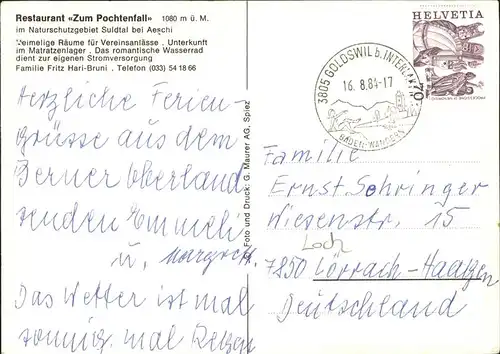 Restaurant «Zum Pochtenfall» 1080 m ü. M.
im Naturschutzgebiet Suldtal bei Aeschi
Heimelige Räume für Vereinsanlässe . Unterkunft
im Matratzenlager . Das romantische Wasserrad
dient zur eigenen Stromversorgung
Familie Fritz Hari-Bruni . Telefon (033) 54 18 66
Herzliche Ferien-
grüsse aus dem
Berner Oberland
senden Emmeli
u. Margrith.
Das Wetter ist mal
sonnig, mal Regen
Foto und Druck: G. Maurer AG, Spiez
3805 GOLDSWIL b. INTERLAKEN
16. 8.84-17
BADEN-WANDERN
HELVETIA
70
Familie
Ernst Sehringer
Wiesenstr. 15
Loch
7850 Lörrach-Haagen
Deutschland